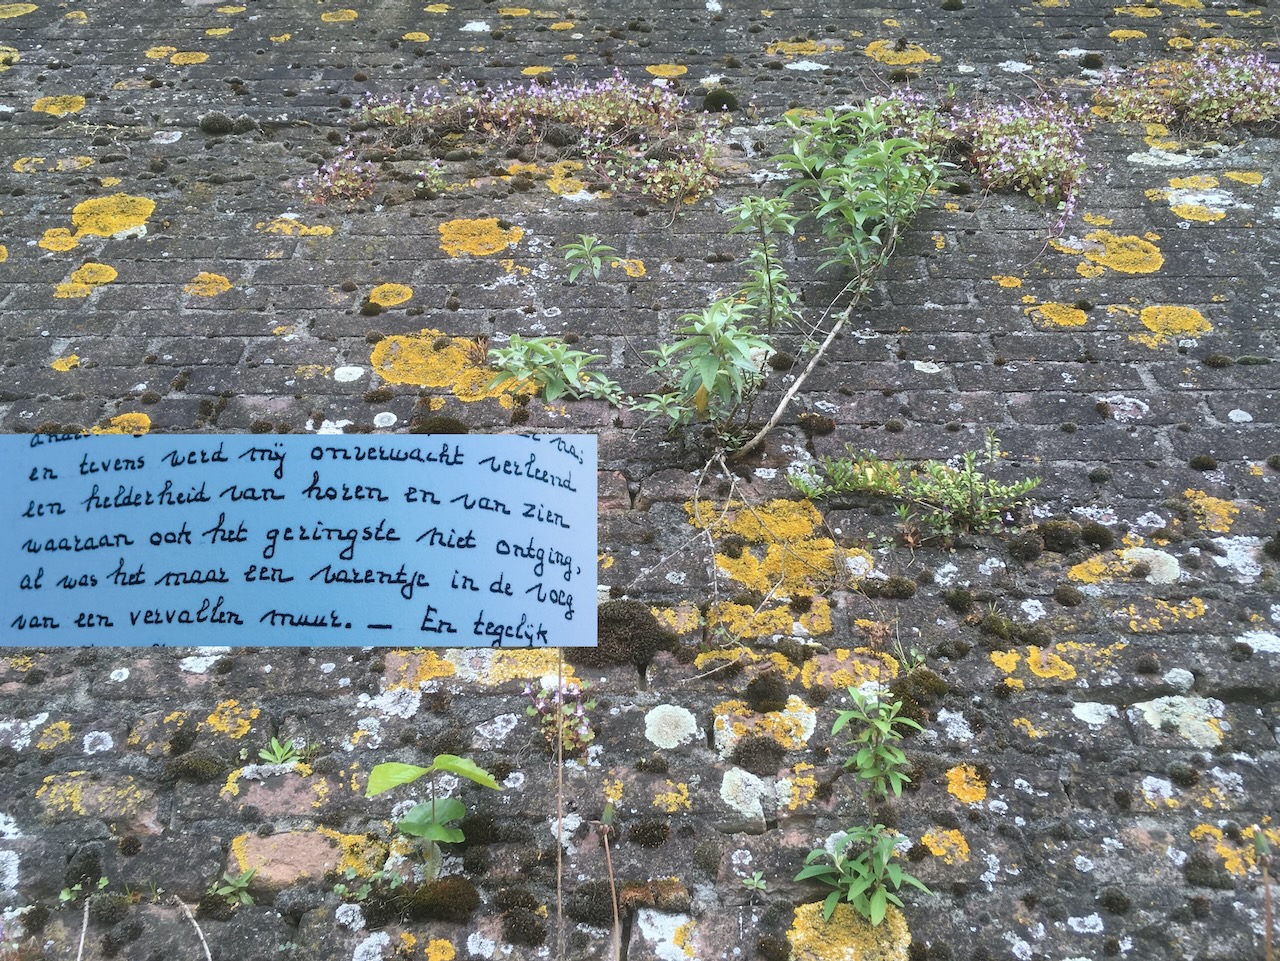 en tevens werd mij onverwacht verleend
een helderheid van horen en van zien
waaraan ook het geringste niet ontging,
al was het maar een varentje in de voeg
van een vervallen muur. — En tegelijk